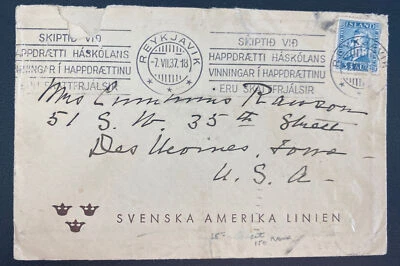 SKIPTIÐ VIÐ
HAPPDRÆTTI HÁSKÓLANS
VINNINGAR Í HAPPDRÆTTINU
ERU SKATTFRJÁLSIR
REYKJAVIK
7.VII.37.18
SKIPTIÐ VIÐ
HAPPDRÆTTI HÁSKÓLANS
VINNINGAR Í HAPPDRÆTTINU
ERU SKATTFRJÁLSIR
ISLAND
Mrs Cummins Rawson
51 S. W. 35th Street
Des Moines, Iowa
U. S. A
SVENSKA AMERIKA LINIEN